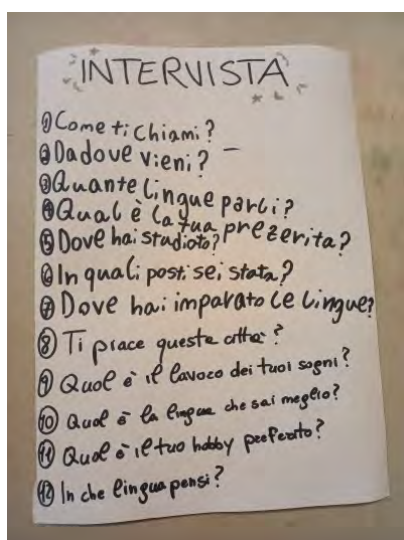 INTERVISTA
① Come ti chiami?
② Da dove vieni? –
③ Quante lingue parli?
④ Qual è la tua prezerita?
⑤ Dove hai studiato?
⑥ In quali posti sei stata?
⑦ Dove hai imparato le lingue?
⑧ Ti piace questa città?
⑨ Qual è il lavoro dei tuoi sogni?
⑩ Qual è la lingua che sai meglio?
⑪ Qual è il tuo hobby preferito?
⑫ In che lingua pensi?